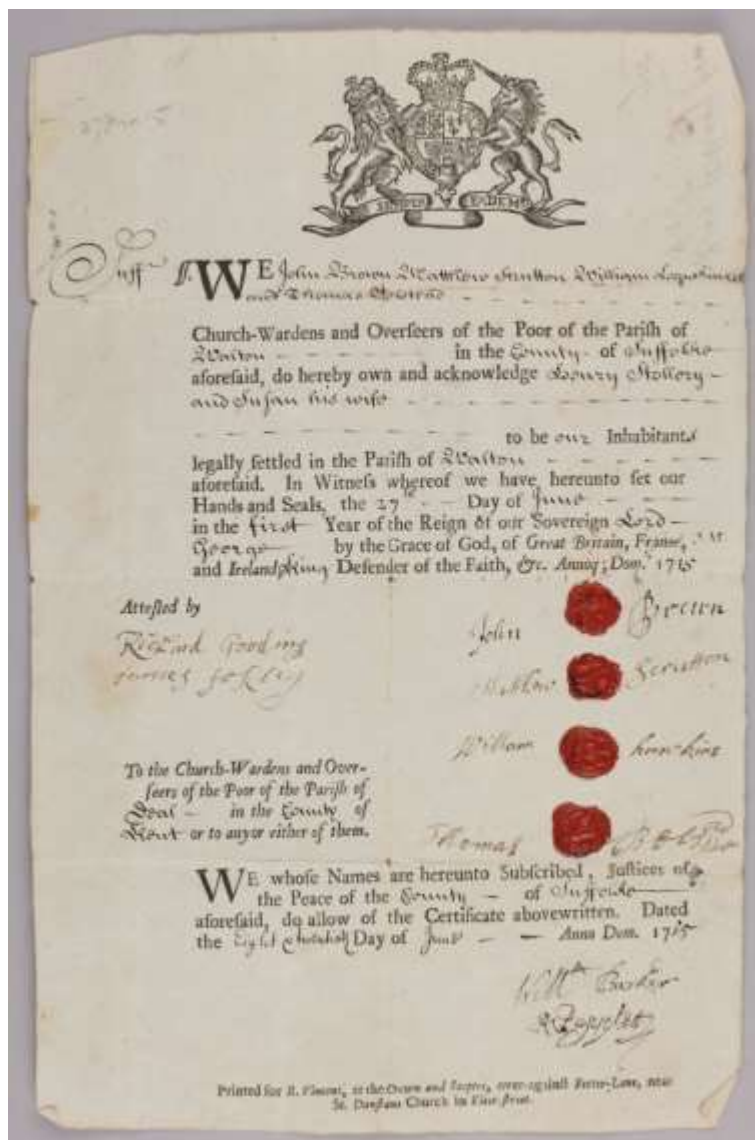 SEMPER EADEM
Suff ſſ. WE John Brown Matthew Scrutton William
and Thomas
Church-Wardens and Overſeers of the Poor of the Pariſh of
Walton in the County of Suffolke
aforeſaid, do hereby own and acknowledge Henry Stollery
and Suſan his wife
to be our Inhabitants
legally ſettled in the Pariſh of Walton
aforeſaid. In Witneſs whereof we have hereunto ſet our
Hands and Seals, the 27th Day of June
in the first Year of the Reign of our Sovereign Lord
George by the Grace of God, of Great Britain, France,
and Ireland King Defender of the Faith, &c. Annoq; Dom. 1715
Attested by
Richard Gooding
James
John Brown
Matthew Scrutton
William Hawkins
Thomas
To the Church-Wardens and Over-
ſeers of the Poor of the Pariſh of
Deal in the County of
Kent or to any or either of them.
WE whoſe Names are hereunto Subſcribed, Juſtices of
the Peace of the County of Suffolke
aforeſaid, do allow of the Certificate abovewritten. Dated
the Day of June Anno Dom. 1715
Will Barker
Printed for R. Vincent, at the Crown and Scepter, over-againſt Fetter-Lane, near
St. Dunſtans Church in Fleet-ſtreet.